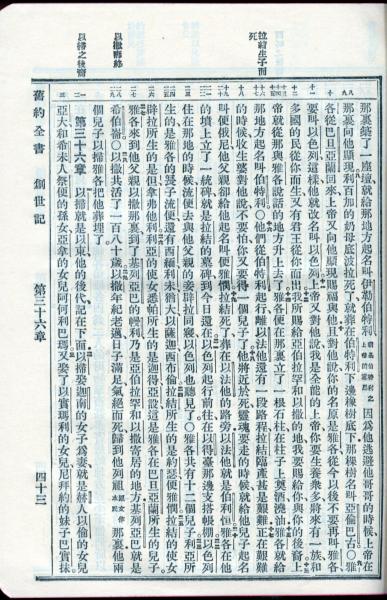 拉結生子而死
以撒壽終
以掃之後裔
那裏築了一座壇就給那地方起名叫伊勒伯特利因為他逃避他哥哥的時候上帝在
那裏向他顯現利百加的奶母底波拉死了就葬在伯特利下邊橡樹底下那棵樹名叫亞倫巴古〇雅
各從巴旦亞蘭回來上帝又向他顯現賜福與他上帝對他說你的名原是雅各從今以後不要再叫雅各
要叫以色列這樣他就改名叫以色列上帝又對他說我是全能的上帝你要生養衆多將來有一族和
多國的民從你而生又有君王從你而出我所賜給亞伯拉罕和以撒的地我要賜給你與你的後裔上
帝就從那與雅各說話的地方升上去了雅各便在那裏立了一根石柱在柱子上奠酒澆油雅各就給
那地方起名叫伯特利〇他們從伯特利起行離以法他還有一段路程拉結臨產甚是艱難正在艱難
的時候收生婆對他說不要怕你又要得一個兒子了他將近於死靈魂要走的時候就給他兒子起名
叫便俄尼他父親卻給他起名叫便雅憫拉結死了葬在以法他的路旁以法他就是伯利恒雅各在他
的墳上立了一統碑就是拉結的墓碑到今日還在以色列起行前往在以得臺那邊支搭帳棚以色列
住在那地的時候流便去與他父親的妾辟拉同寢以色列也聽見了〇雅各共有十二個兒子利亞所
生的是雅各的長子流便還有西緬利未猶大以薩迦西布倫拉結所生的是約瑟便雅憫拉結的使女
辟拉所生的是但拿弗他利利亞的使女悉帕所生的是迦得亞設這是雅各在巴旦亞蘭所生的兒子
雅各來到他父親以撒那裏到了基列亞巴的幔利乃是亞伯拉罕和以撒寄居的地方基列亞巴就是
希伯崙〇以撒共活了一百八十歲以撒年紀老邁日子滿足氣絕而死歸到他列祖原文作本民那裏他兩
個兒子以掃雅各把他葬埋了
第三十六章 以掃就是以東他的後代記在下面以掃娶迦南的女子為妻就是赫人以倫的女兒
亞大和希未人祭便的孫女亞拿的女兒阿何利巴瑪又娶了以實瑪利的女兒尼拜約的妹子巴實抹
舊約全書 創世記 第三十六章 四十三